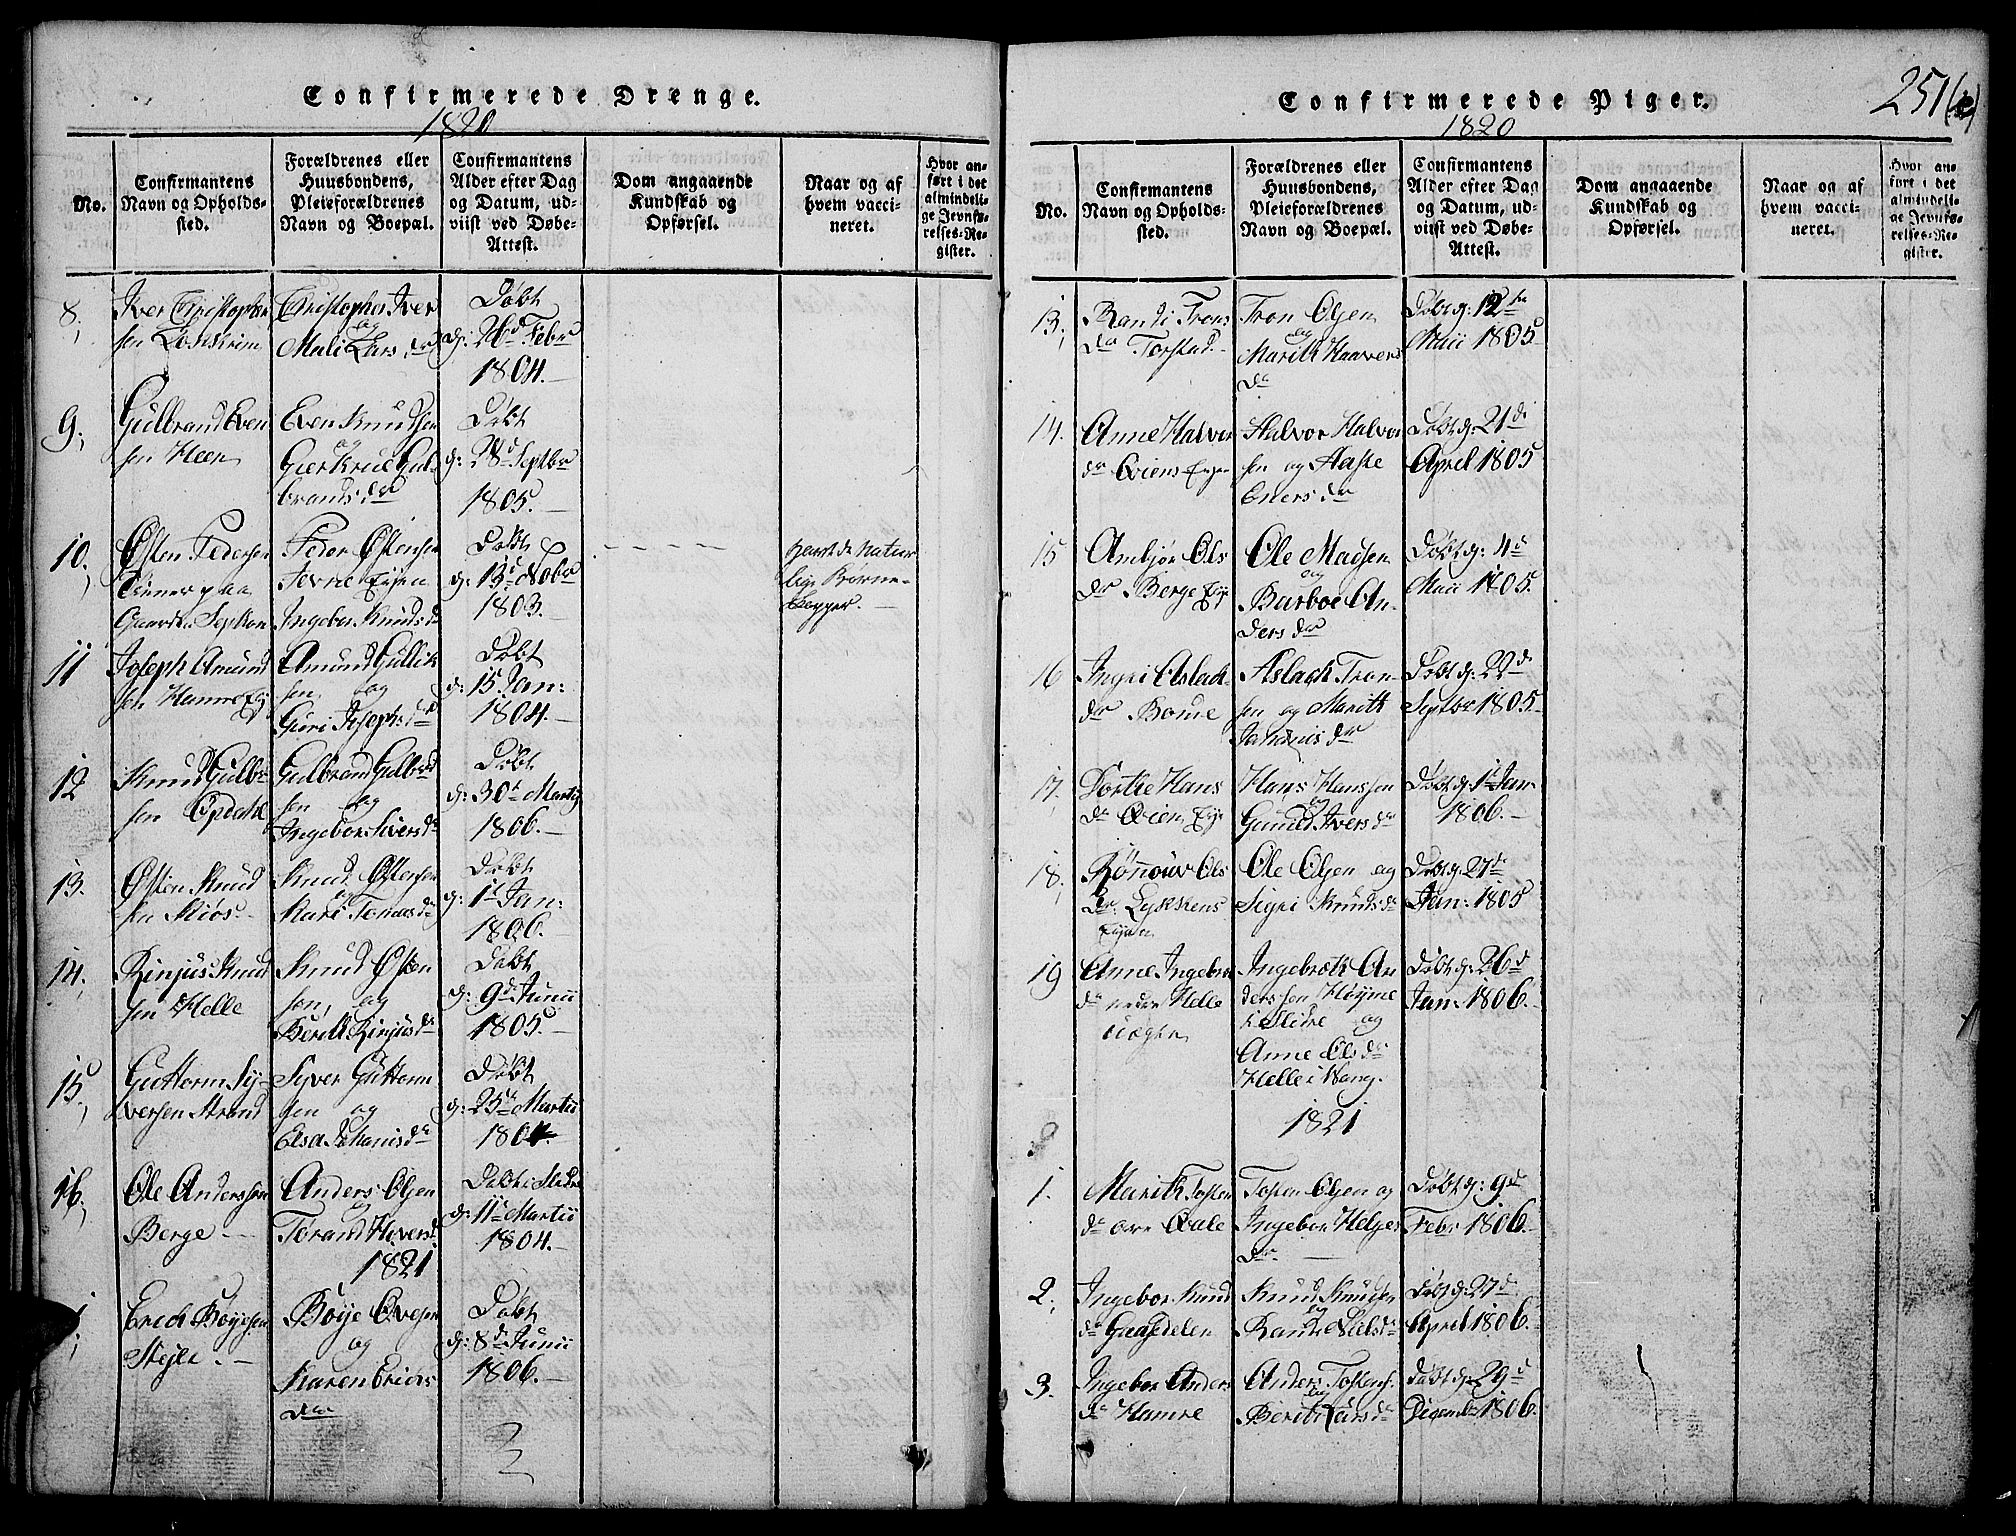 Confirmerede Drenge.
1820
No.
Confirmantens
Navn og Opholds-
sted.
Forældrenes eller
Huusbondens,
Pleieforældrenes
Navn og Boepæl.
Confirmantens
Alder efter Dag
og Datum, ud-
viist ved Døbe-
Attest.
Dom angaaende
Kundskab og
Opførsel.
Naar og af
hvem vacci-
neret.
Hvor an-
ført i det
almindeli-
ge Jevnfø-
relses-Re-
gister.
8.
Iver Christopher
sen
Christopher Iver
og
Mali Lars da
Døbt
d: 26d Febr
1804.
9.
Gulbrand Even
sen Heen
Even Knudsen
og
Giertrue Gul-
brands da
Døbt
d: 28d Septbr
1805.
10.
Østen Pedersen
Tiener paa
Gaarden
Peder Østensen
Jevne Eyen
Ingebor Knuds d
Døbt
d: 13d Nobr
1803.
havt de natur
lige Børne-
kopper.
11
Joseph Amund
sen Hamre Ey
Amund Gullik
sen og
Guri Josephs da
Døbt
d: 15 Jan:
1804.
12
Knud Gulbr
sen Opdahl
Gulbrand Gulbrd
sen og
Ingebor Sivers da
Døbt
d: 30t Martij
1806.
13.
Østen Knud
sen Miøs
Knud Østensen
og
Mari Tomas d
Døbt
d: 1t Jan:
1806.
14.
Rinjus Knud
sen Helle
Knud Østen
sen og
Berith Rinjus da
Døbt
d: 9d Junii
1805.
15.
Guttorm Sy-
versen Strand
Syver Guttorm
sen og
Elsa Johanis da
Døbt
d: 25d Martii
1804
16.
Ole Andersen
Berge
Anders Olsen
og
Torand Havers d
Døbt i Slidre
d: 11te Martii
1804.
1821
1.
Erich Bøyesen
Steile
Bøye Ovesen
og
Karen Erichs
da
Døbt
d: 8d Junii
1806.
Confirmerede Piger.
251
1820
No.
Confirmantens
Navn og Opholds-
sted.
Forældrenes eller
Huusbondens,
Pleieforældrenes
Navn og Boepæl.
Confirmantens
Alder efter Dag
og Datum, ud-
viist ved Døbe-
Attest.
Dom angaaende
Kundskab og
Opførsel.
Naar og af
hvem vacci-
neret.
Hvor an-
ført i det
almindeli-
ge Jevnfø-
relses-Re-
gister.
13.
Randi Trons
da Torstad
Tron Olsen
og
Marith Haavers
da
Døbt d: 12te
Maii 1805
14.
Anne Halvor
da Qviens Eye
Halvor Halvor
sen og Aaste
Eners da
Døbt d: 21d
April 1805
15
Ambjør Ols
da Berge Eye
Ole Madsen
og
Barboe An-
ders da
Døbt d: 4d
Maii 1805.
16
Ingri Aslak-
da Bome
Aslack Tron-
sen og Marith
Johanis da
Døbt d: 22d
Septbr 1805.
17.
Dorthe Hans
da Qvien Eye
Hans Hanssen
og
Gunild Ivers da
Døbt d: 1t Jan:
1806.
18.
Rønnouv Ols
da Lykkens
Eyen
Ole Olsen og
Sigri Knuds da
Døbt d: 27d
Jan: 1805
19
Anne Ingebre
da nedre Helle
Ingebrek An
derssen Høyme
i Slidre og
Anne Ols da
Helle i Wang.
Døbt d: 26d
Jan: 1806.
1821
1.
Marith Tosten
da øvre Qvale
Tosten Olsen og
Ingebor Helges
da
Døbt d: 9d
Febr 1806.
2.
Ingebor Knud
da Gaasedelen
Knud Knudsen
og
Randi Niels da
Døbt d: 27d
April 1806.
3.
Ingebor Anders
da Hamre
Anders Tostens.
og
Berit Lars da
Døbt d: 29d
Decemb 1806.